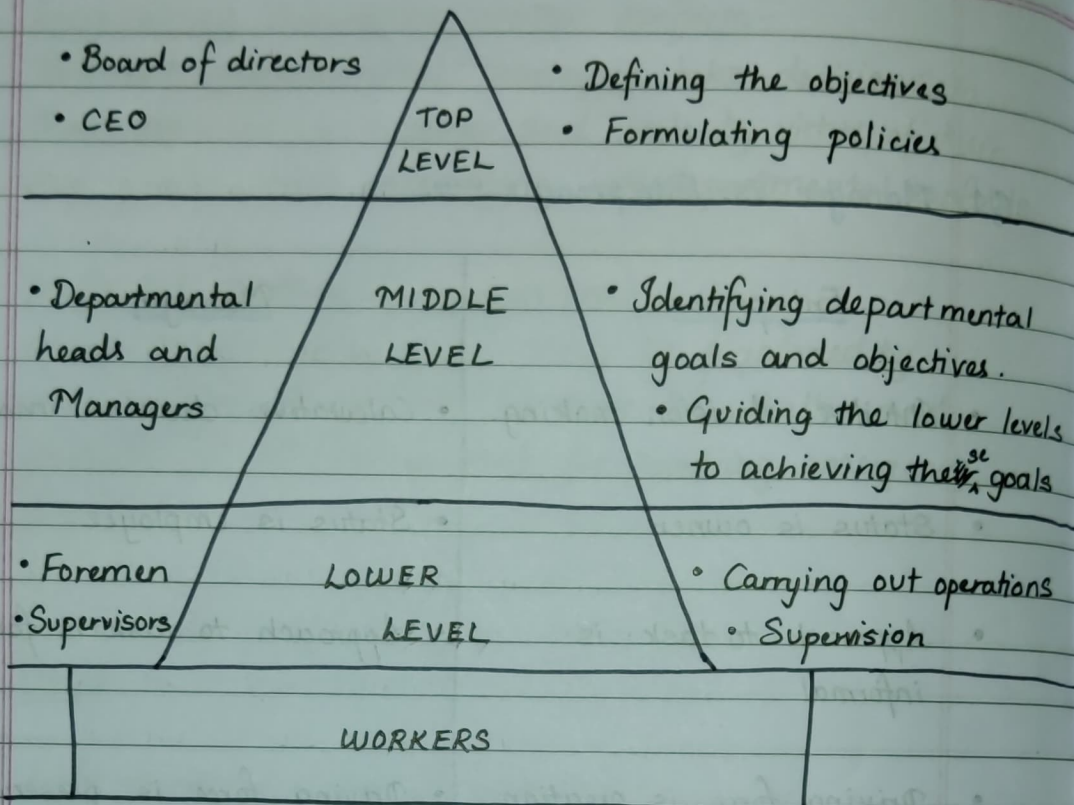 • Board of directors
• CEO
TOP
LEVEL
• Defining the objectives
• Formulating policies
• Departmental
heads and
Managers
MIDDLE
LEVEL
• Identifying departmental
goals and objectives.
• Guiding the lower levels
to achieving these goals
• Foremen
• Supervisors
LOWER
LEVEL
• Carrying out operations
• Supervision
WORKERS